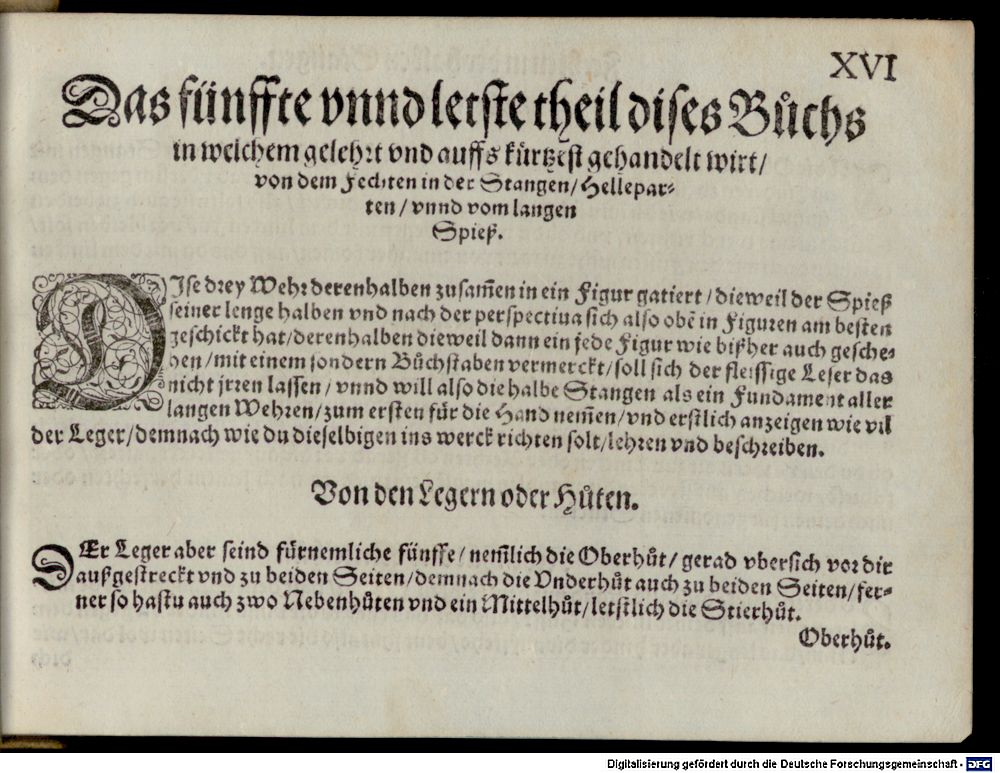 XVI
Das fünffte vnnd letste theil dises Bůchs
in welchem gelehrt vnd auffs kürtzest gehandelt wirt/
von dem Fechten in der Stangen/ Hellepar-
ten/ vnnd vom langen
Spieß.
DIse drey Wehr derenhalben zusam̃en in ein Figur gatiert/ dieweil der Spieß
seiner lenge halben vnd nach der perspectiua sich also obẽ in Figuren am besten
geschickt hat/ derenhalben dieweil dann ein jede Figur wie bißher auch gesche-
hen/ mit einem sondern Bůchstaben vermerckt/ soll sich der fleissige Leser das
nicht jrren lassen/ vnnd will also die halbe Stangen als ein Fundament aller
langen Wehren/ zum ersten für die Hand nem̃en/ vnd erstlich anzeigen wie vil
der Leger/ demnach wie du dieselbigen ins werck richten solt/ lehren vnd beschreiben.
Von den Legern oder Hůten.
DEr Leger aber seind fürnemliche fünffe/ nem̃lich die Oberhůt/ gerad vbersich vor dir
außgestreckt vnd zu beiden Seiten/ demnach die Vnderhůt auch zu beiden Seiten/ fer-
ner so hastu auch zwo Nebenhůten vnd ein Mittelhůt/ letstlich die Stierhůt.
Oberhůt.
Digitalisierung gefördert durch die Deutsche Forschungsgemeinschaft - DFG